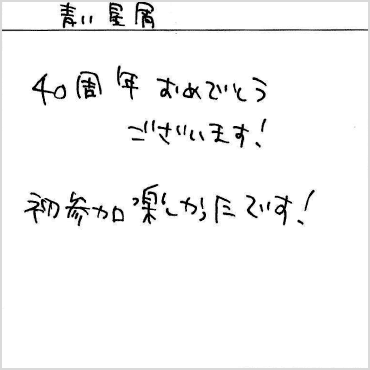 青い星屑
40周年おめでとう
ございます!
初参加楽しかたです!